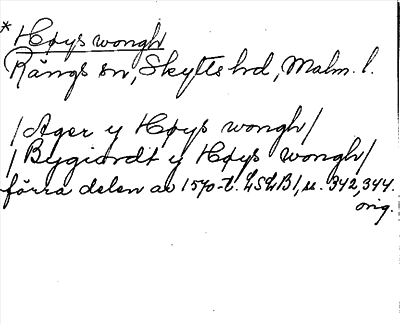 * Høys wongh
Rängs sn, Skytts hd, Malm. l.
/Ager y Høys wongh/
/Bygiordt y Høys wongh/
förra delen av 1570-t. LSLB1, u. 342, 344.
orig.